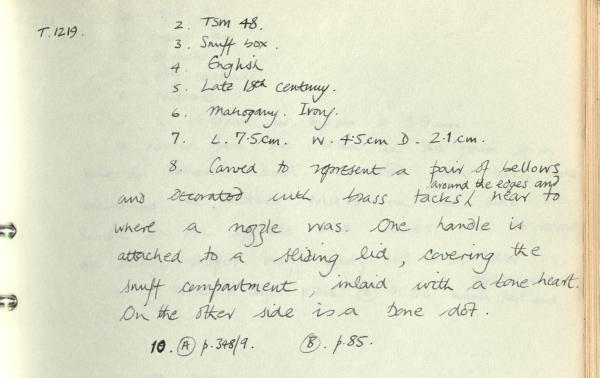 T.1219. 2. TSM 48.
3. Snuff box.
4. English
5. Late 18th century.
6. Mahogany. Ivory.
7. L. 7.5cm. W. 4.5cm D. 2.1cm.
8. Carved to represent a pair of bellows
around the edges and
and decorated with brass tacks near to
where a nozzle was. One handle is
attached to a sliding lid, covering the
snuff compartment, inlaid with a bone heart.
On the other side is a bone dot.
10. (A) p.348/9. (B). p.85.